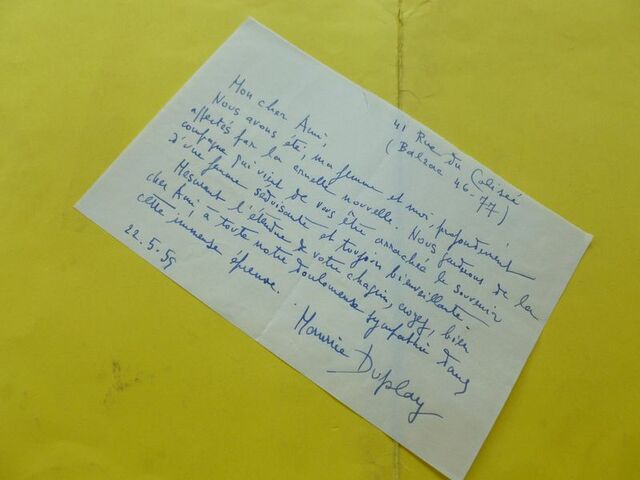 41 Rue du Colisée
(Balzac 46-77)
Mon cher Ami,
Nous avons été, ma femme et moi, profondément
affectés par la cruelle nouvelle. Nous gardons de la
compagne qui vient de vous être arrachée le souvenir
d'une femme séduisante et toujours bienveillante.
Mesurant l'étendue de votre chagrin, croyez, bien
cher Ami, à toute notre douloureuse sympathie dans
cette immense épreuve.
22.5.59
Maurice Duplay